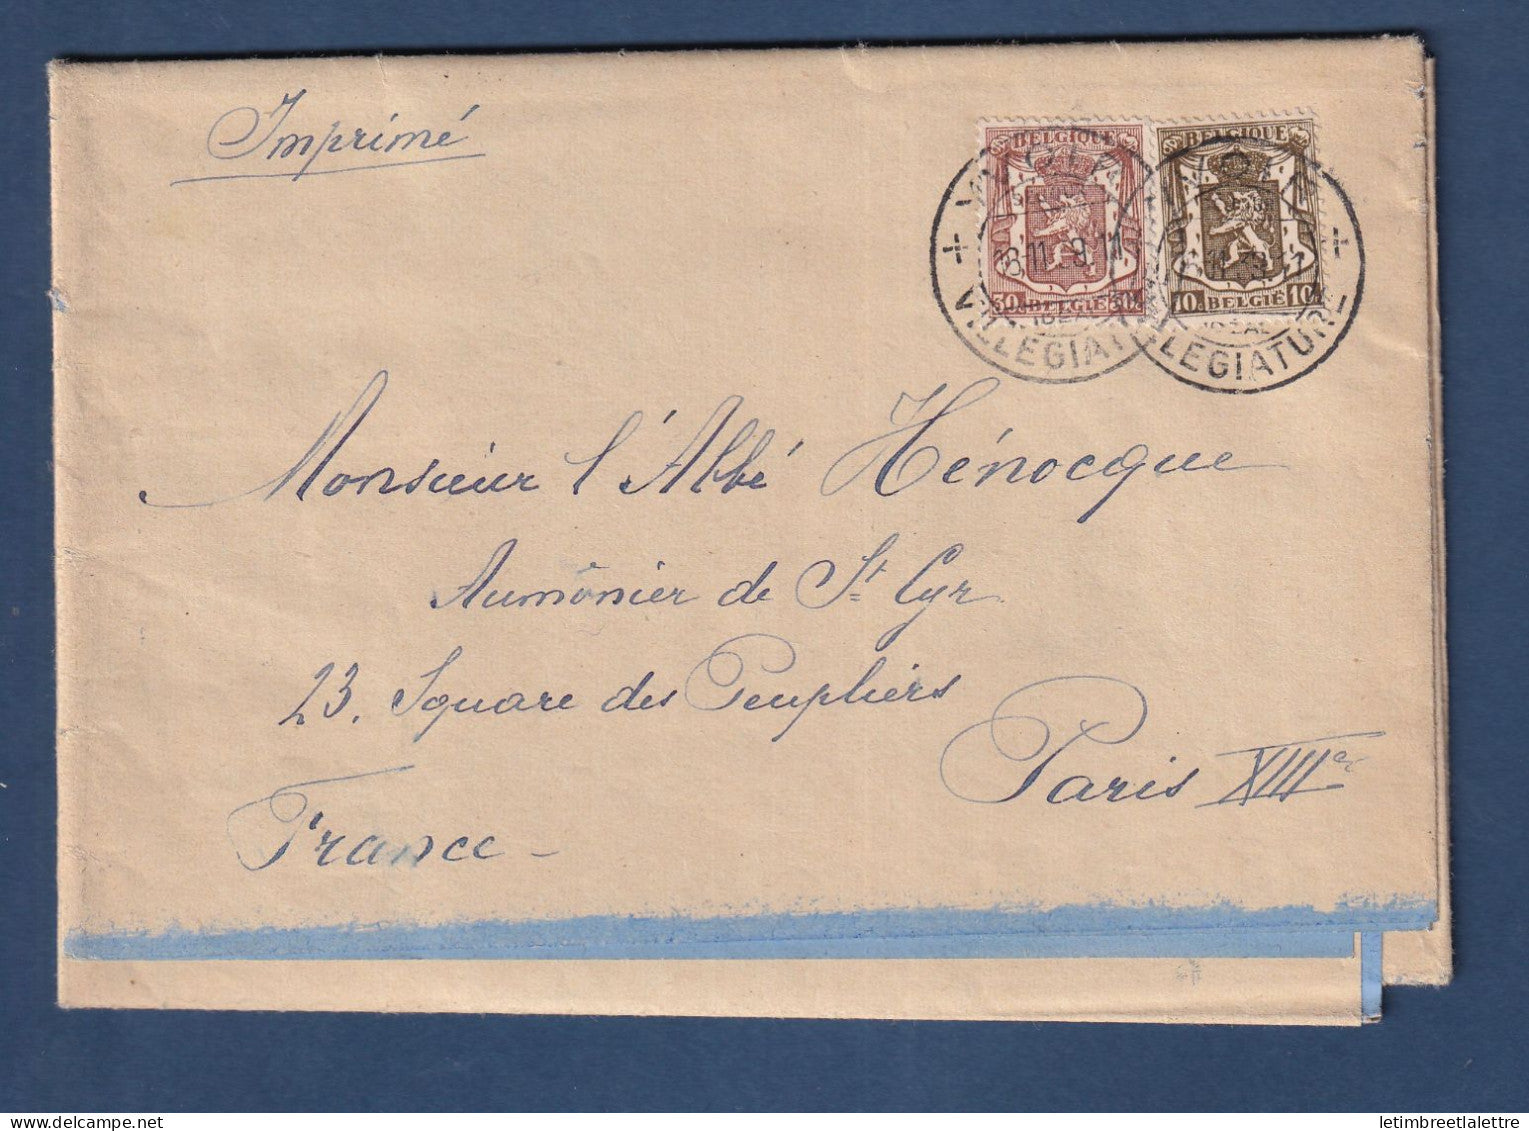 Imprimé
BELGIQUE
BELGIQUE
BELGIË
10c BELGIË 10c
VILLEGIATURE
VILLEGIATURE
Monsieur l'Abbé Hénocque
Aumônier de St Cyr
23, Square des Peupliers
Paris XIIIe
France -
letimbreetlalettre